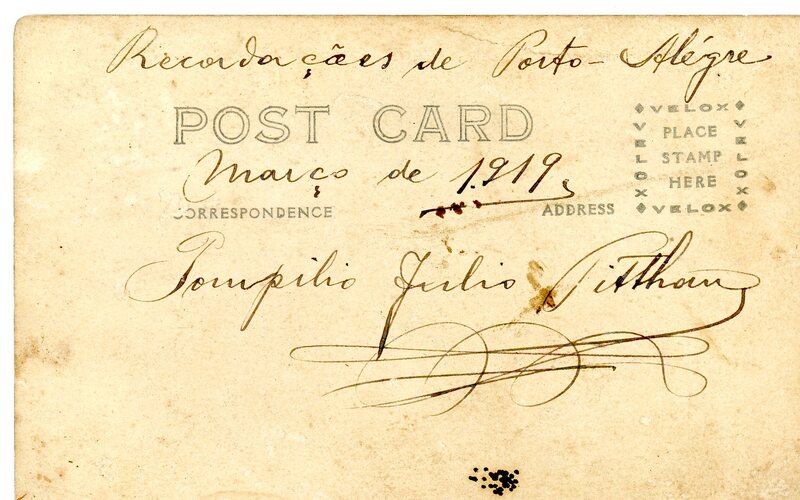 Recordações de Porto-Alégre
POST CARD
Março de 1.919,
CORRESPONDENCE
ADDRESS
VELOX
VELOX
PLACE
STAMP
HERE
VELOX
VELOX
Pompilio Julio Pitthan